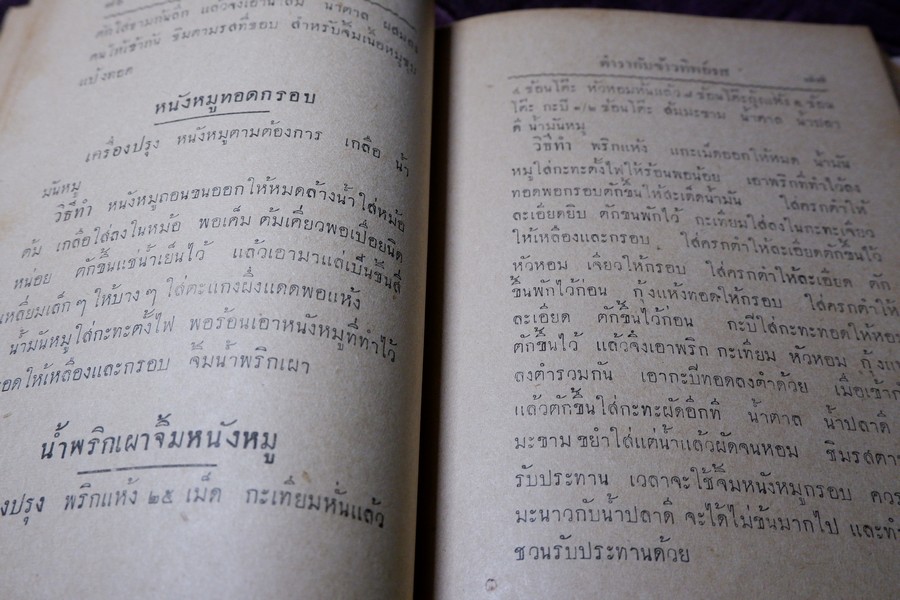 ตักใส่ชามก้นลึก แล้วจึงเอาน้ำส้ม น้ำตาล ผสมลง
คนให้เข้ากัน ชิมตามรสที่ชอบ สำหรับจิ้มเนื้อหมูชุบ
แป้งทอด
หนังหมูทอดกรอบ
เครื่องปรุง หนังหมูตามต้องการ เกลือ น้ำ
มันหมู
วิธีทำ หนังหมูถอนขนออกให้หมดล้างน้ำใส่หม้อ
ต้ม เกลือใส่ลงในหม้อ พอเค็ม ต้มเคี่ยวพอเปื่อยนิด
หน่อย ตักขึ้นแช่น้ำเย็นไว้ แล้วเอามาแล่เป็นชิ้นสี่
เหลี่ยมเล็กๆ ให้บางๆ ใส่ตะแกงผึ่งแดดพอแห้ง
น้ำมันหมูใส่กะทะตั้งไฟ พอร้อนเอาหนังหมูที่ทำไว้
ทอดให้เหลืองและกรอบ จิ้มน้ำพริกเผา
น้ำพริกเผาจิ้มหนังหมู
ปรุง พริกแห้ง ๒๕ เม็ด กะเทียมหั่นแล้ว
ตำรากับข้าวทิพย์รส ๗๗
๔ ช้อนโต๊ะ หัวหอมหั่นแล้ว ๘ ช้อนโต๊ะกุ้งแห้ง ๑ ช้อน
โต๊ะ กะปิ ๑/๒ ช้อนโต๊ะ ส้มมะขาม น้ำตาล น้ำปลา
ดี น้ำมันหมู
วิธีทำ พริกแห้ง แกะเม็ดออกให้หมด น้ำมัน
หมูใส่กะทะตั้งไฟให้ร้อนพอน้อย เอาพริกที่ทำไว้ลง
ทอดพอกรอบตักขึ้นให้สะเด็ดน้ำมัน ใส่ครกตำให้
ละเอียดยิบ ตักขึ้นพักไว้ กะเทียมใส่ลงในกะทะเจียว
ให้เหลืองและกรอบ ใส่ครกตำให้ละเอียดตักขึ้นไว้
หัวหอม เจียวให้กรอบ ใส่ครกตำให้ละเอียด ตัก
ขึ้นพักไว้ก่อน กุ้งแห้งทอดให้กรอบ ใส่ครกตำให้
ละเอียด ตักขึ้นไว้ก่อน กะปิใส่กะทะทอดให้หอม
ตักขึ้นไว้ แล้วจึงเอาพริก กะเทียม หัวหอม กุ้ง
ลงตำรวมกัน เอากะปิทอดลงตำด้วย เมื่อเข้า
แล้วตักขึ้นใส่กะทะผัดอีกที น้ำตาล น้ำปลาดี
มะขาม ขยำใส่แต่น้ำแล้วผัดจนหอม ชิมรสตาม
รับประทาน เวลาจะใช้จิ้มหนังหมูกรอบ ควร
มะนาวกับน้ำปลาดี จะได้ไม่ข้นมากไป และทำ
ชวนรับประทานด้วย